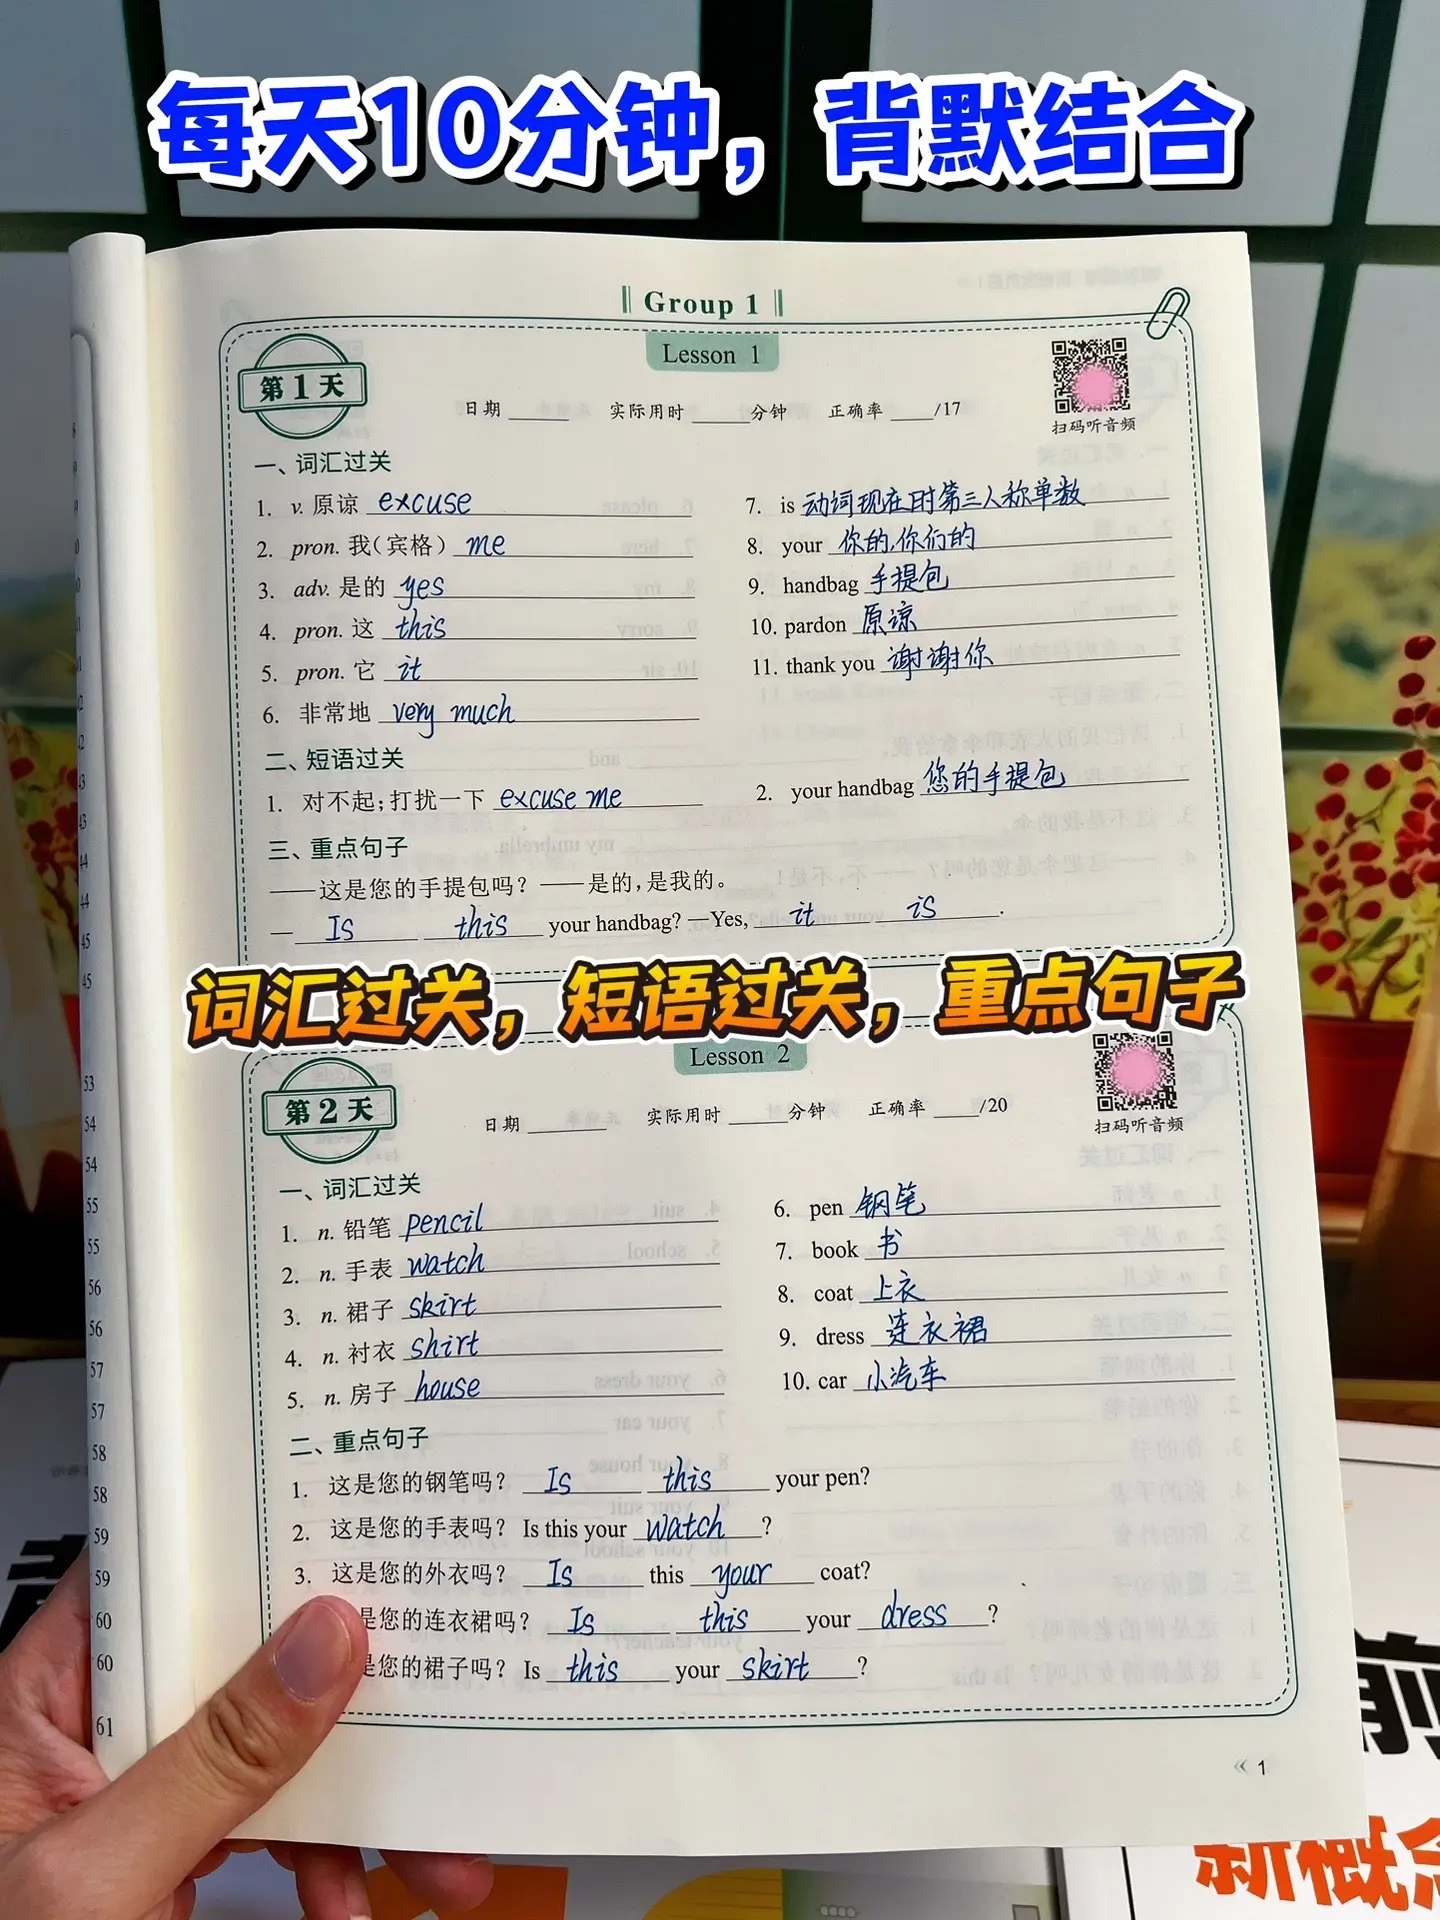 每天10分钟，背默结合
Group 1
Lesson 1
第1天
日期 ______ 实际用时 ______分钟 正确率 ____/17
扫码听音频
一、词汇过关
1. v. 原谅 excuse
2. pron. 我(宾格) me
3. adv. 是的 yes
4. pron. 这 this
5. pron. 它 it
6. 非常地 very much
7. is 动词现在时第三人称单数
8. your 你的,你们的
9. handbag 手提包
10. pardon 原谅
11. thank you 谢谢你
二、短语过关
1. 对不起;打扰一下 excuse me
2. your handbag 您的手提包
三、重点句子
——这是您的手提包吗? ——是的,是我的。
— Is this your handbag? —Yes, it is.
词汇过关，短语过关，重点句子
Lesson 2
第2天
日期 ______ 实际用时 ______分钟 正确率 ____/20
扫码听音频
一、词汇过关
1. n. 铅笔 pencil
2. n. 手表 watch
3. n. 裙子 skirt
4. n. 衬衣 shirt
5. n. 房子 house
6. pen 钢笔
7. book 书
8. coat 上衣
9. dress 连衣裙
10. car 小汽车
二、重点句子
1. 这是您的钢笔吗? Is this your pen?
2. 这是您的手表吗? Is this your watch?
3. 这是您的外衣吗? Is this your coat?
是您的连衣裙吗? Is this your dress?
是您的裙子吗? Is this your skirt?
1
新概念